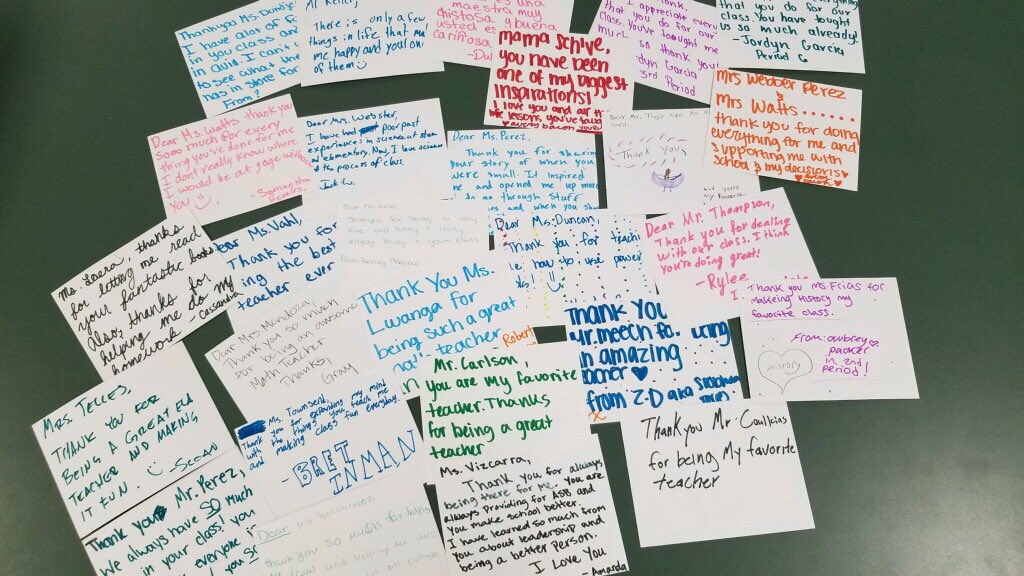 Thank you Ms.
I have a lot of
in you class and
in Avid. I can't
to see what
has in store for
From?
Mr Kelley,
There is only a few
things in life that
me happy and your one
of them
una
maestra muy
y buena
chistosa
usted es
cariñosa
mama Schive,
you have been
one of my biggest
inspirations!
I love you and all the
lessons, you've
I appreciate
that you do for our
class. You've tought me
so thank you
Jordyn Garcia
3rd Period
that you do for our
class. You have tought
us so much already!
-Jordyn Garcia
Period 6
Mrs Webber Perez
&
Mrs Watts......
thank you for doing
everything for me and
supporting me with
school & my decisions
Dear Ms. Watts thank you
Sooo much for every
thing you've done for me
I dont really know where
I would be at gage without
you
Dear Mrs. Webster,
I have had poor past
experiences in science at
elementary. Now, I love science
and the process of class.
Jack W.
Dear Ms. Perez,
Thank you for sharing
your story of when you
were small. It inspired
me and opened me up more
to go through stuff
and when you
Dear Ms. Trejo hope you
Thank you
Ms Loera, thanks
for letting me read
your fantastic books
Also, thanks for
helping me do my
homework
Cassandra
Dear Ms. Vahl,
Thank you for
ing the best
teacher ever
enjoy being in your class
Dear Ms. Duncan,
Thank you for
how to use power
Dear Mr. Thompson,
Thank you for dealing
with our class. I think
you're doing great!
-Rylee
Thank you Ms. Frias for
Makeing History my
favorite class.
From: Aubrey
packer
in 2nd
period!
History
Dear Mrs Mendoza,
Thank you so much
for being an awesome
Math Teacher
Thanks,
Gray
Thank You Ms.
Lwanga for
being such a great
teacher
Robert
Thank you
Mr. meech for being
an amazing
teacher
from Z-D aka
Mrs. Telles,
Thank you for
being a great ELA
teacher and making
it fun.
-Sean
Ms. Townsend,
Thank you for expanding my mind
with the things you teach me
and making class fun everyday.
-Bret
Inman
Mr. Carlson,
you are my favorite
teacher. Thanks
for being a great
teacher
Thankyou Mr Caulkins
for being My favorite
teacher
Thank you Mr. Perez,
We always have SO Much
in your class! you
everyone
Dear Ms
thank you so much for
Ms. Vizcarra,
Thank you for always
being there for me. You are
always providing for ASB and
you make school better
I have learned so much from
you about leadership and
being a better person.
I Love You
-Amanda